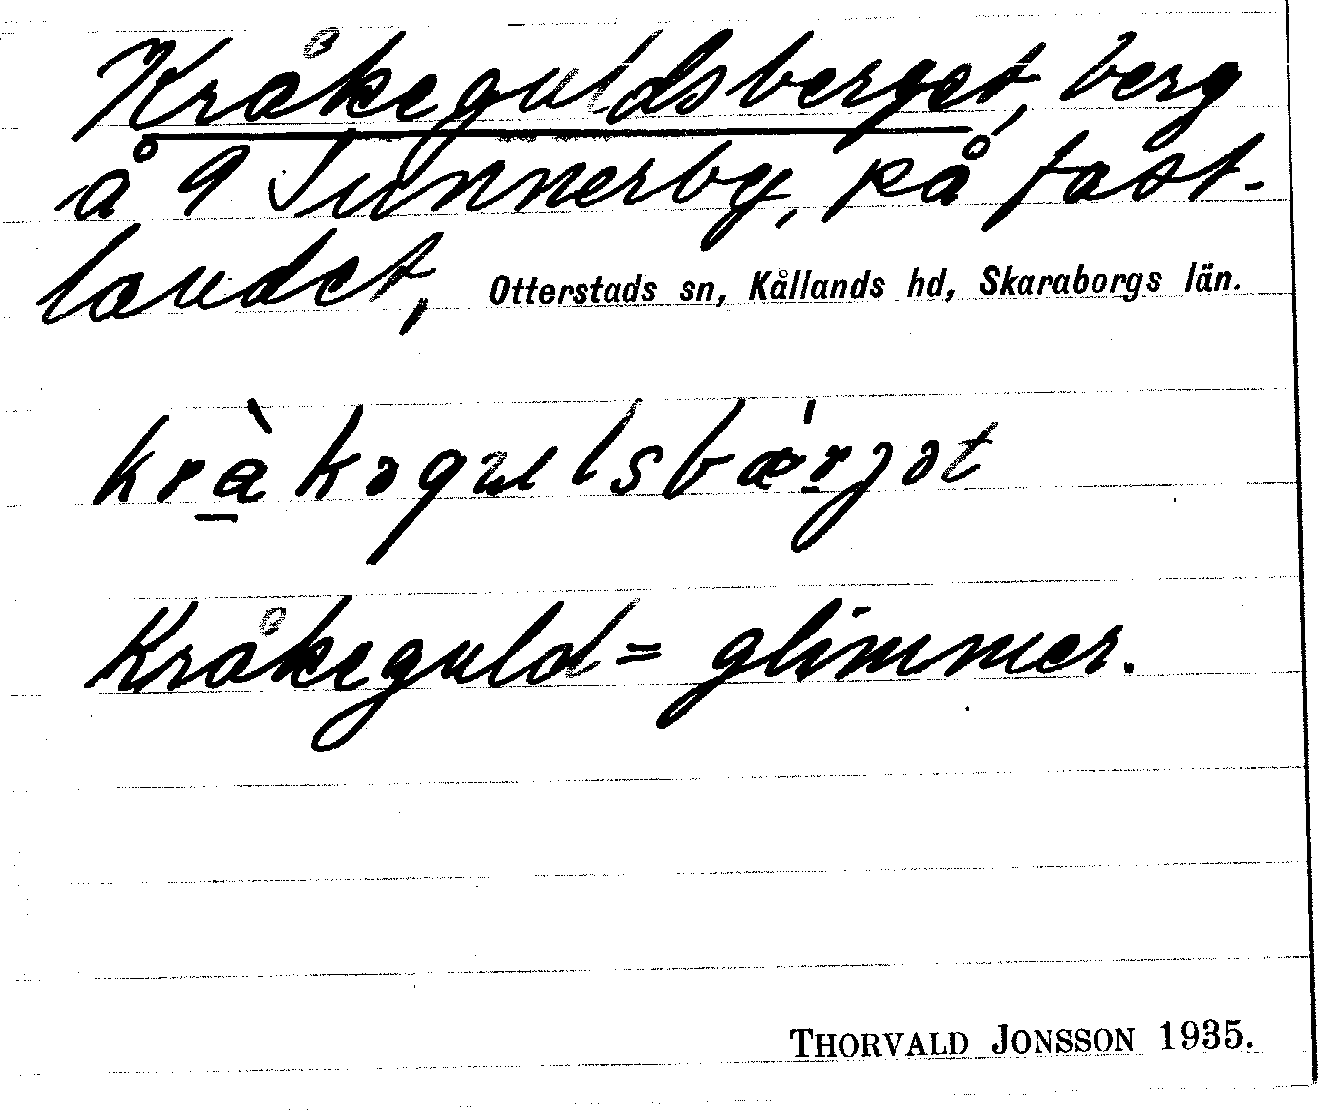 Kråkeguldsberget, berg
å 9 Sunnerby, på fast-
landet, Otterstads sn, Kållands hd, Skaraborgs län.
krà̱kəgulsbæ̀r̠jət
Kråkeguld = glimmer.
THORVALD JONSSON 1935.